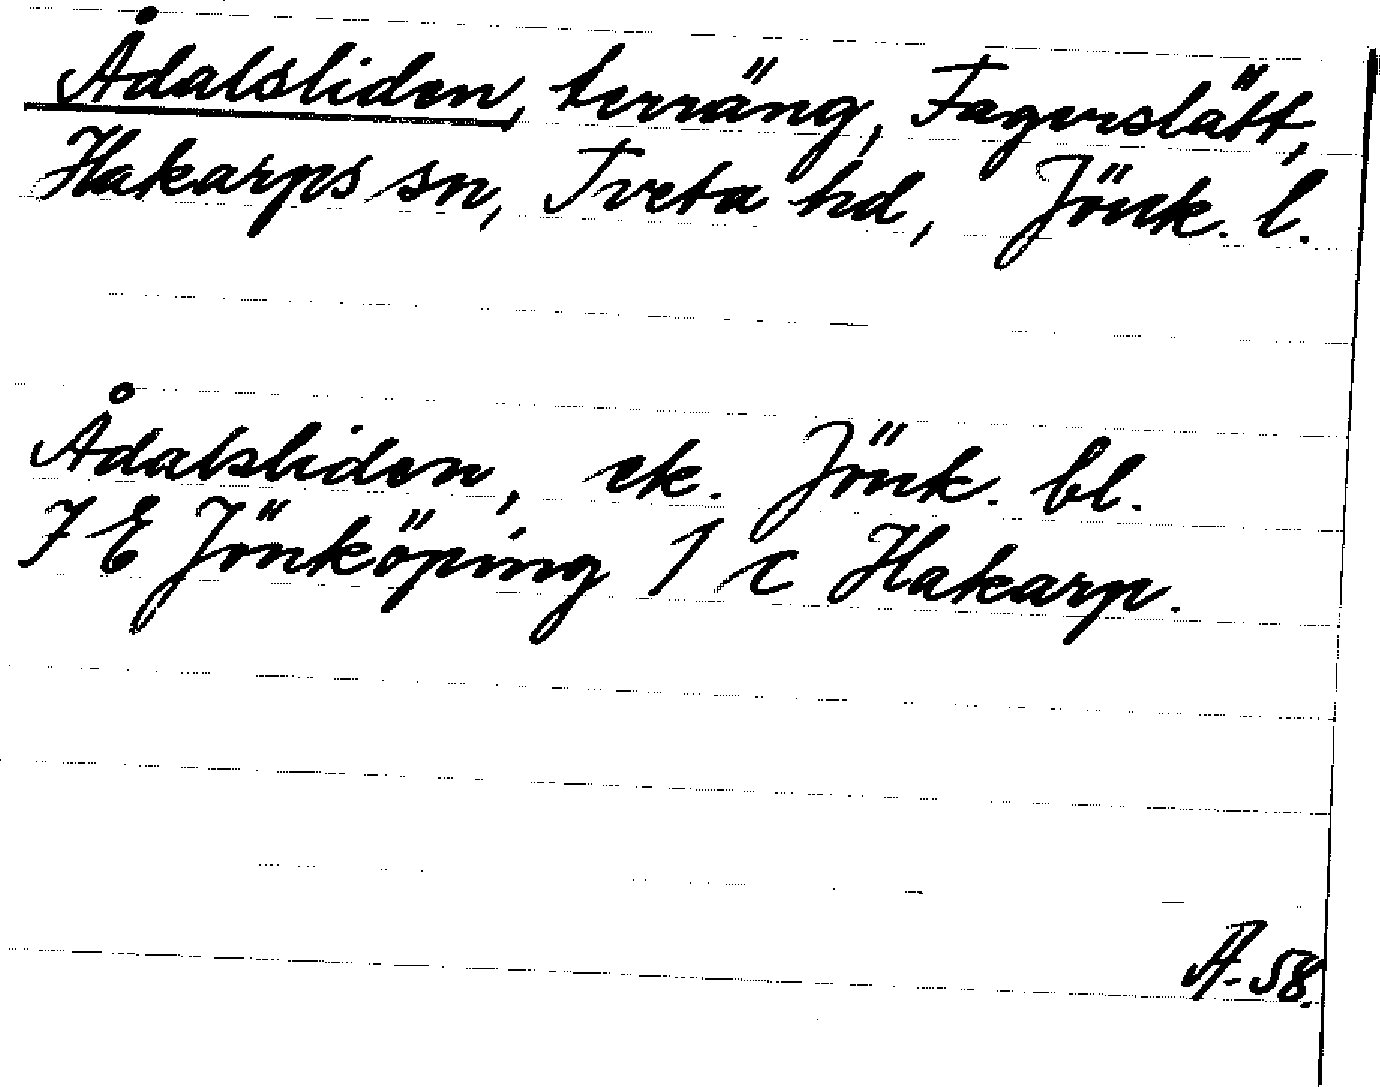 Ådalsliden, terräng, Fagerslätt,
Hakarps sn, Tveta hd, Jönk. l.
Ådalsliden, ek. Jönk. bl.
7 E Jönköping 1 c Hakarp.
A-58.